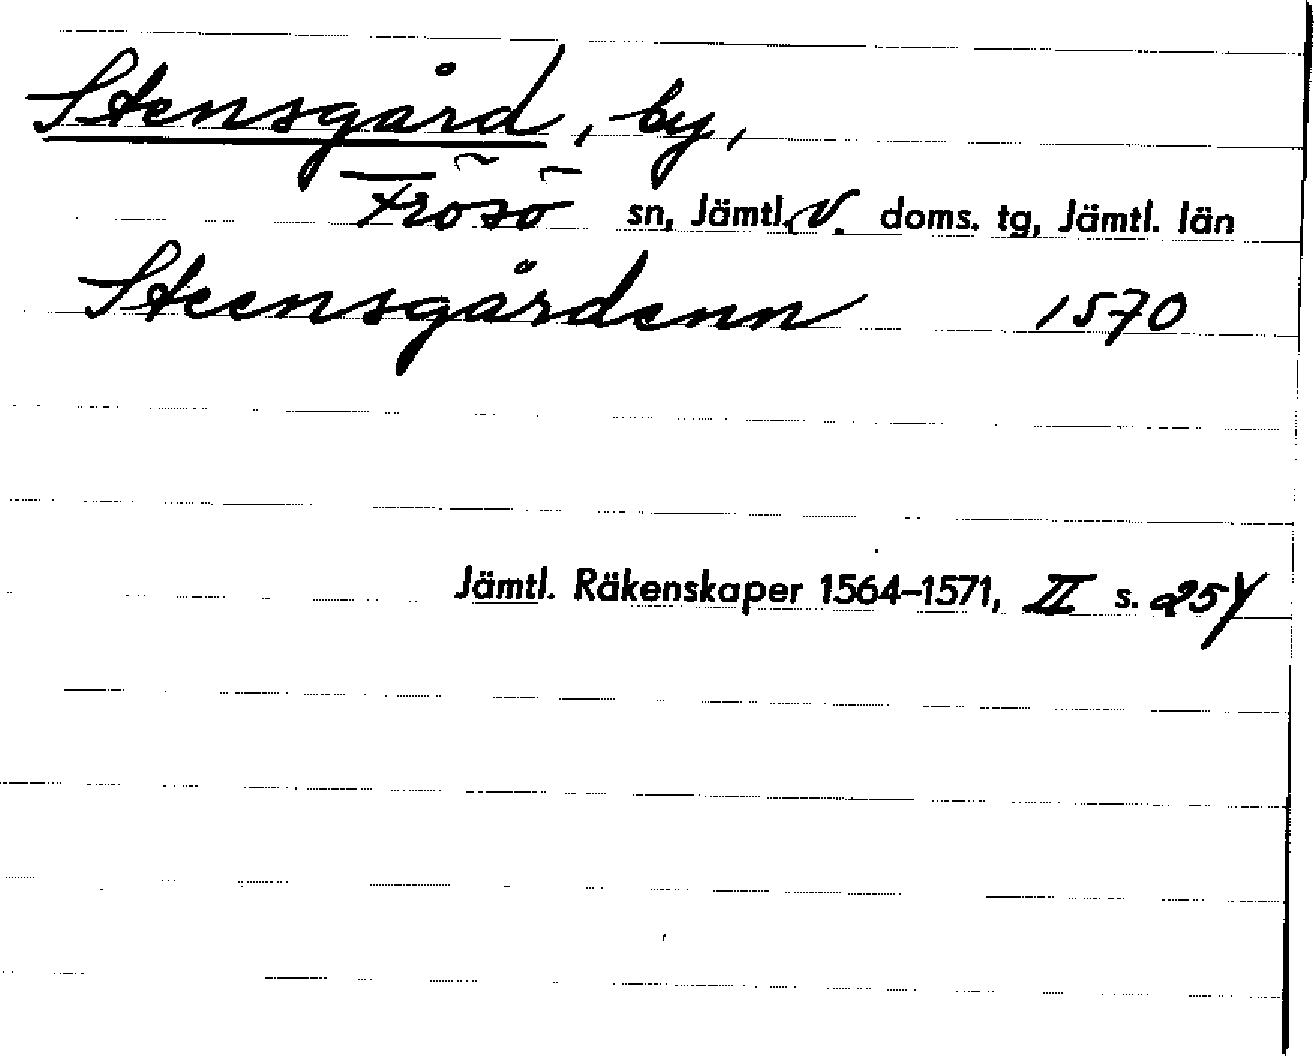 Stensgård, by,
Frösö sn, Jämtl. V. doms. tg, Jämtl. län
Steensgårdenn 1570
Jämtl. Räkenskaper 1564–1571, II s.